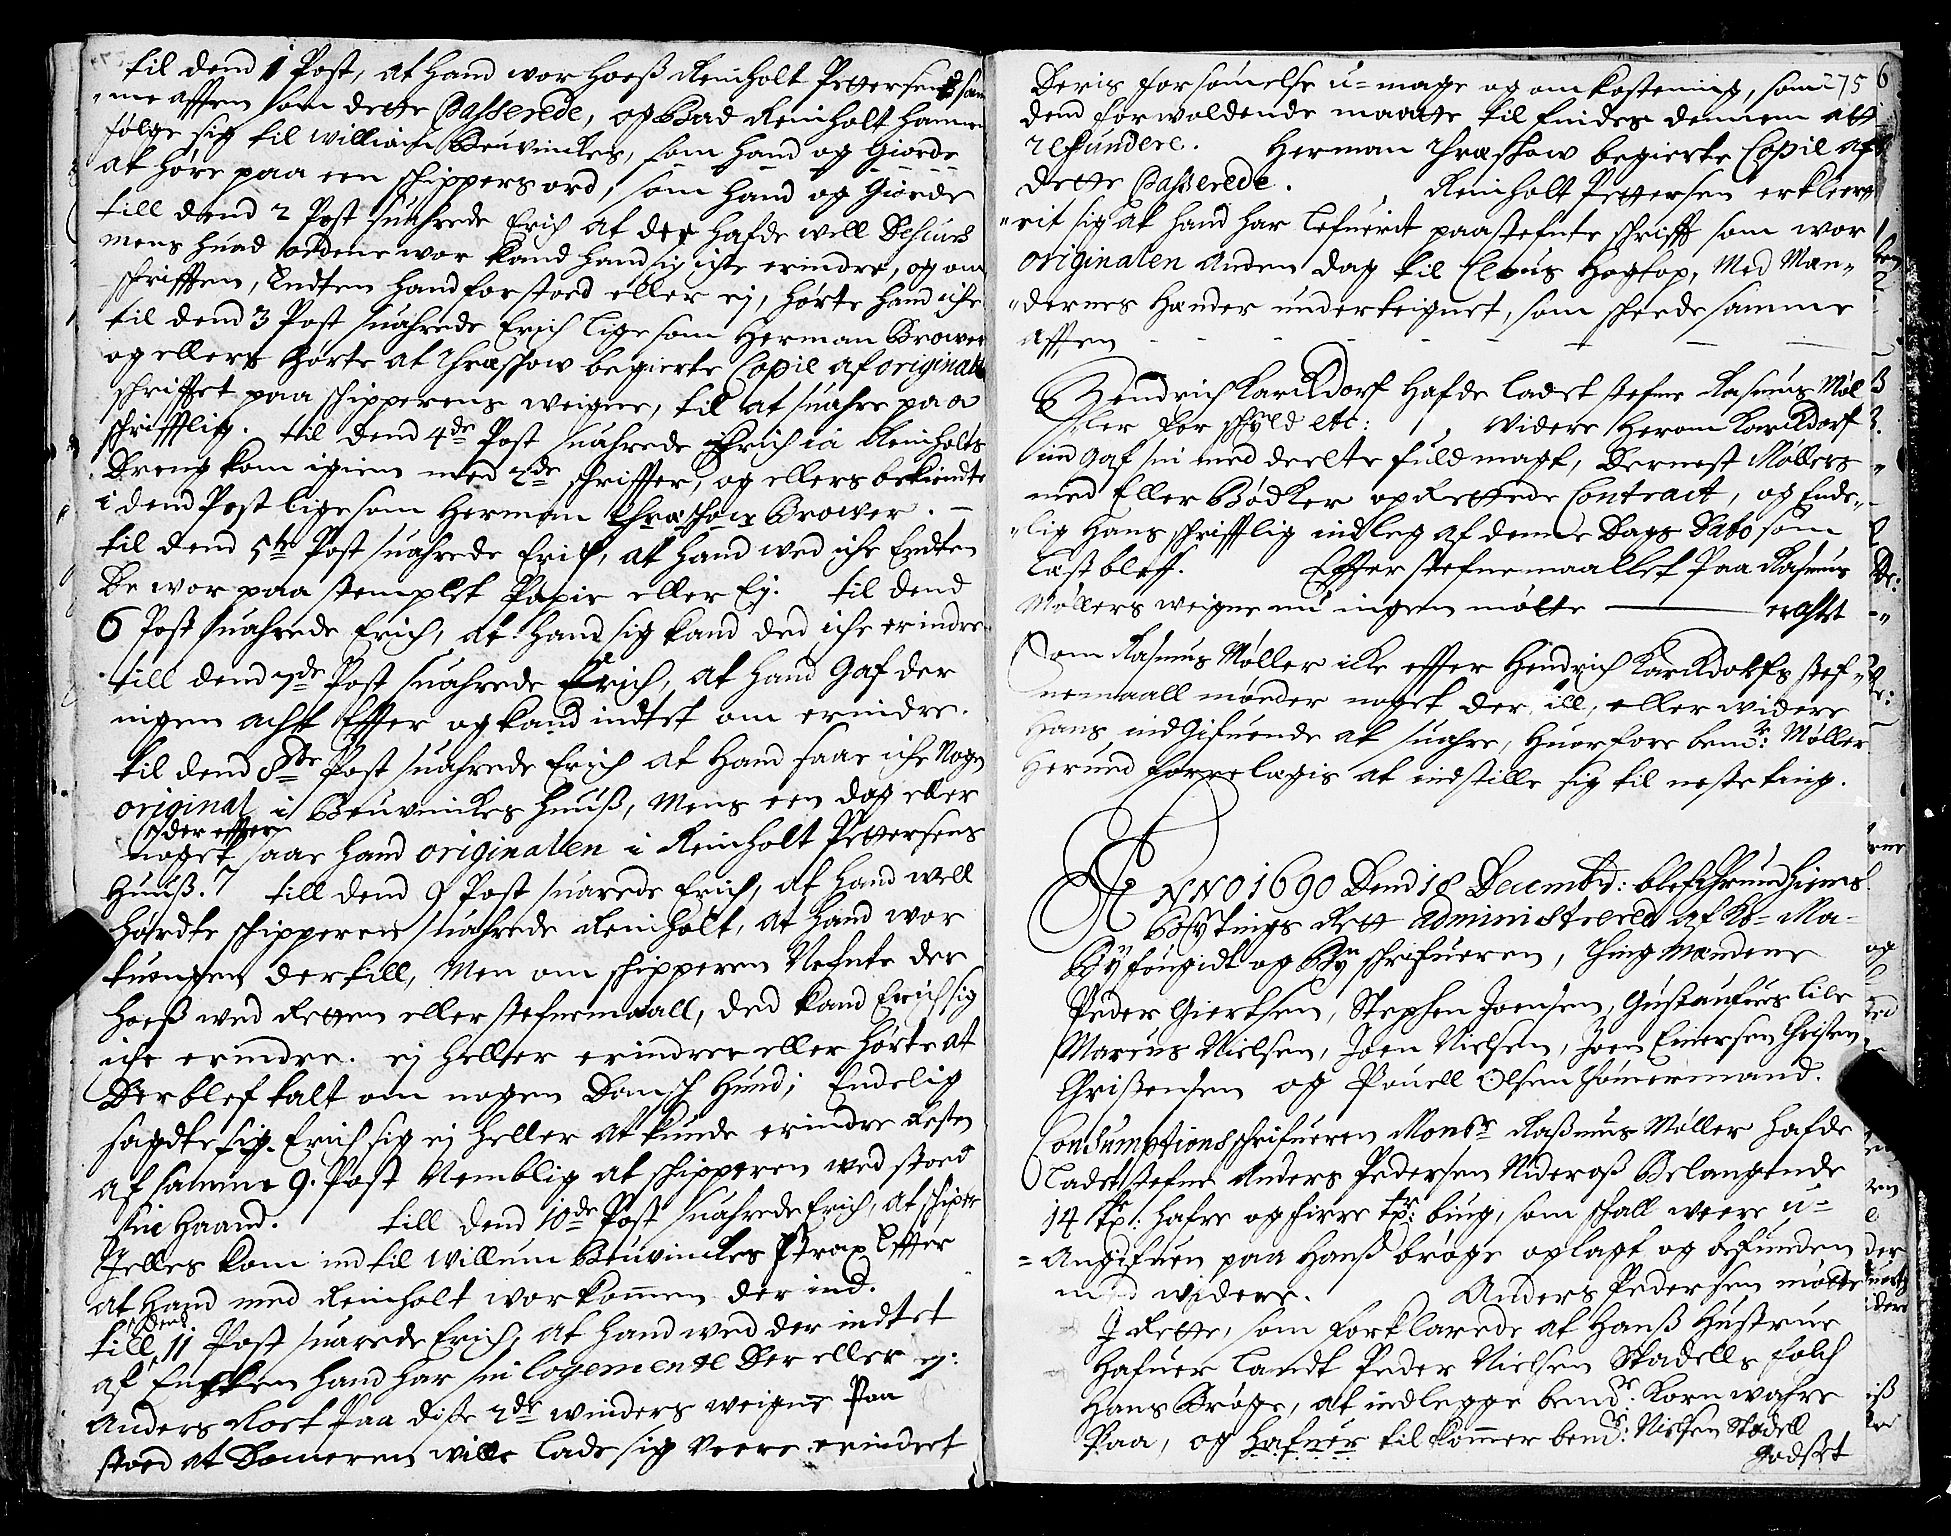 til dend 1 Post, at hand wor hoeß Reinholt Pettersens sam
"me afften som dette Passerede, og Bad Reinholt hannem
følge sig til william Beuvinckes, som hand og Giorde
at høre paa een schippers ord, som hand og Giorde
till dend 2 Post suahrede Erich at der hafde well
mens huad ordene wor kand hand sig iche erindre, og om
schrifften, Endten hand forstoed eller ej, hørte hand iche
til dend 3 Post suahrede Erich lige som Herman Brower
og ellers hørte at Thraschow begierte Copie af original
schrifftet paa schipperens weigne, til at suahre paa
schrifftlig. til dend 4de Post suahrede Erich ia Reinholts
Dreng kom igien med 2de schriffter, og ellers bekiendte
i dend Post lige som Herman Thraschow Brower. -
til dend 5te Post suahrede Erich, at hand wed iche Endten
De wor paa stemplet Papir eller Ey. til dend
6 Post suahrede Erich, at hand sig kand ded iche erindre
till dend 7de Post suahrede Erich, at hand Gaf der
ingen acht Effter og kand indtet om erindre.
til dend 8de Post suahrede Erich at hand saae iche Nogen
original i Beuvinckes huuß, Mens een dag eller
der effter
noget saae hand originalen i Reinholt Pettersens
Huuß. till dend 9 Post suarede Erich, at hand well
hørdte schipperen suahrede Reinholt, at hand wor
tuongen dertill, Men om schipperen Nefnte der
hoeß wed Retten eller stefnemaall, ded kand Erich sig
iche erindre. ej heller erindrer eller hørte at
Der blef talt om nogen Dansch Hund; Endelig
sagdte sig Erich sig ej heller at kunde erindre Resten
af samme 9. Post Nemblig at schipperen wed stoed
sin Haand. till dend 10de Post suahrede Erich, at schiper
Jelles kom ind til Willum Beuvinckes Strax Effter
at hand med Reinholt wor kommen der ind.
dend
till 11 Post suarede Erich, at hand wed der indtet
af Enten hand har sin logemente Der eller ej:
Anders Roet Paa diße 2de winders weigne Paa
stoed at Domeren wille lade sig were erindret
Deris forsømelse u=mage og omkostening, som 275
dend forwoldende maatte til findes dennem att
refundere. Herman Thraschow begierte Copie af
dette Passerede. Reinholt Pettersen erkleer
"rit sig at hand har lefuerit paastefnte schrifft som wor
originalen Anden dag til Hogtop, Med Man"
"dernes Hænder underteignet, som scheede samme
Afften - - - - - - - -
Hendrich Karckdorf Hafde ladet stefne Rasmus Møl
ler for schyld etc: Videre Herom Karckdorf
ind gaf sin med deelte fuldmagt, Dernest Møllers
med Eller Bødker op Rettede Contract, og Ende"
"lig Hans schrifftlig indleg af denne Dags Dato som
Læst bleff. Effter stefnemaallet Paa Rasmus
Møllers weigne nu ingen møtte ——— eragtet
Som Rasmus Møller ikke effter Hendrich Karckdorfs stef"
nemaall møeder noget der till, eller widere
Hans indGifuende at suahre, Huorfore bende: Møller
Herued forrelagis at indstille sig til neste ting.
ANNO 1690 Dend 18 Decembr: blef Thrundhiems
Bytings Rett administrered af Ko- Ma-
Byfougidt og Byschrifueren, Thing Mændene
Peder Giertsen, Stephen Joensen, Gustaufus Lile
Marcus Nielsen, Joen Nielsen, Joen Einersen Christen
Christensen og Pouell Olsen Tømermand.
Consumptionsschrifueren Monsr Raßmus Møller Hafde
Ladet stefne Anders Pedersen Nideroß Belangende
14 tr: Hafre og firre tr: biug, som schall were u=
=Angifuen paa Hanß brøge oplagt og befunden
med widere. Anders Pedersen møtte
J Rette, som forklarede at Hanß Hustrue
Hafuer landt Peder Nielsen Stadells folch
Hans Brøge, at indlegge bende: Kornwahre
Paa, og Hafuer til kommer bende: Nielsen Stadell
Godset